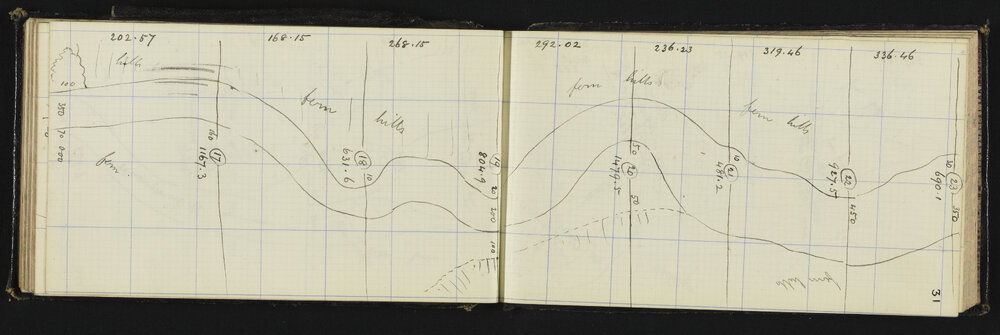 202.57
168.15
268.15
292.02
236.23
319.46
336.46
hills
fern
hills
fern hills
fern hills
fern
100
350
70
000
60
17
1167.3
18
10
631.6
19
804.9
20
200
100
50
20
1479.5
50
10
21
481.2
22
927.5
450
10
23
690.1
350
hills
31